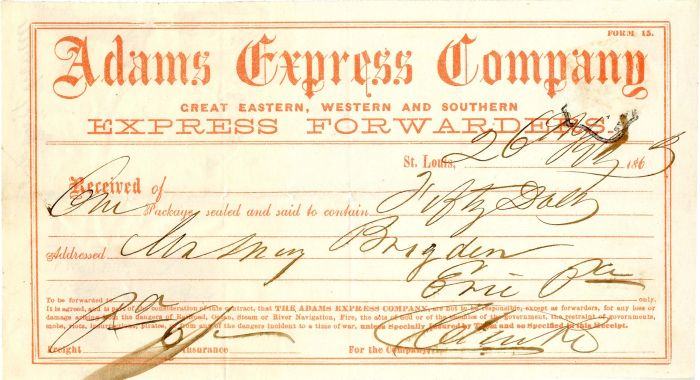 FORM 15.
Adams Express Company
GREAT EASTERN, WESTERN AND SOUTHERN
EXPRESS FORWARDERS.
St. Louis, 26 186
Received of
One Package sealed and said to contain Fifty Dolls
Addressed Brigden
Erie Pa
To be forwarded to only.
It is agreed, and is part of the consideration of this contract, that THE ADAMS EXPRESS COMPANY, are not to be responsible, except as forwarders, for any loss or
damage arising from the dangers of Railroad, Ocean, Steam or River Navigation, Fire, the acts of God or of the enemies of the government, the restraint of governments,
mobs, riots, insurrections, pirates, or from any of the dangers incident to a time of war, unless Specially Insured by Them and so Specified in this Receipt.
Freight Insurance For the Company,